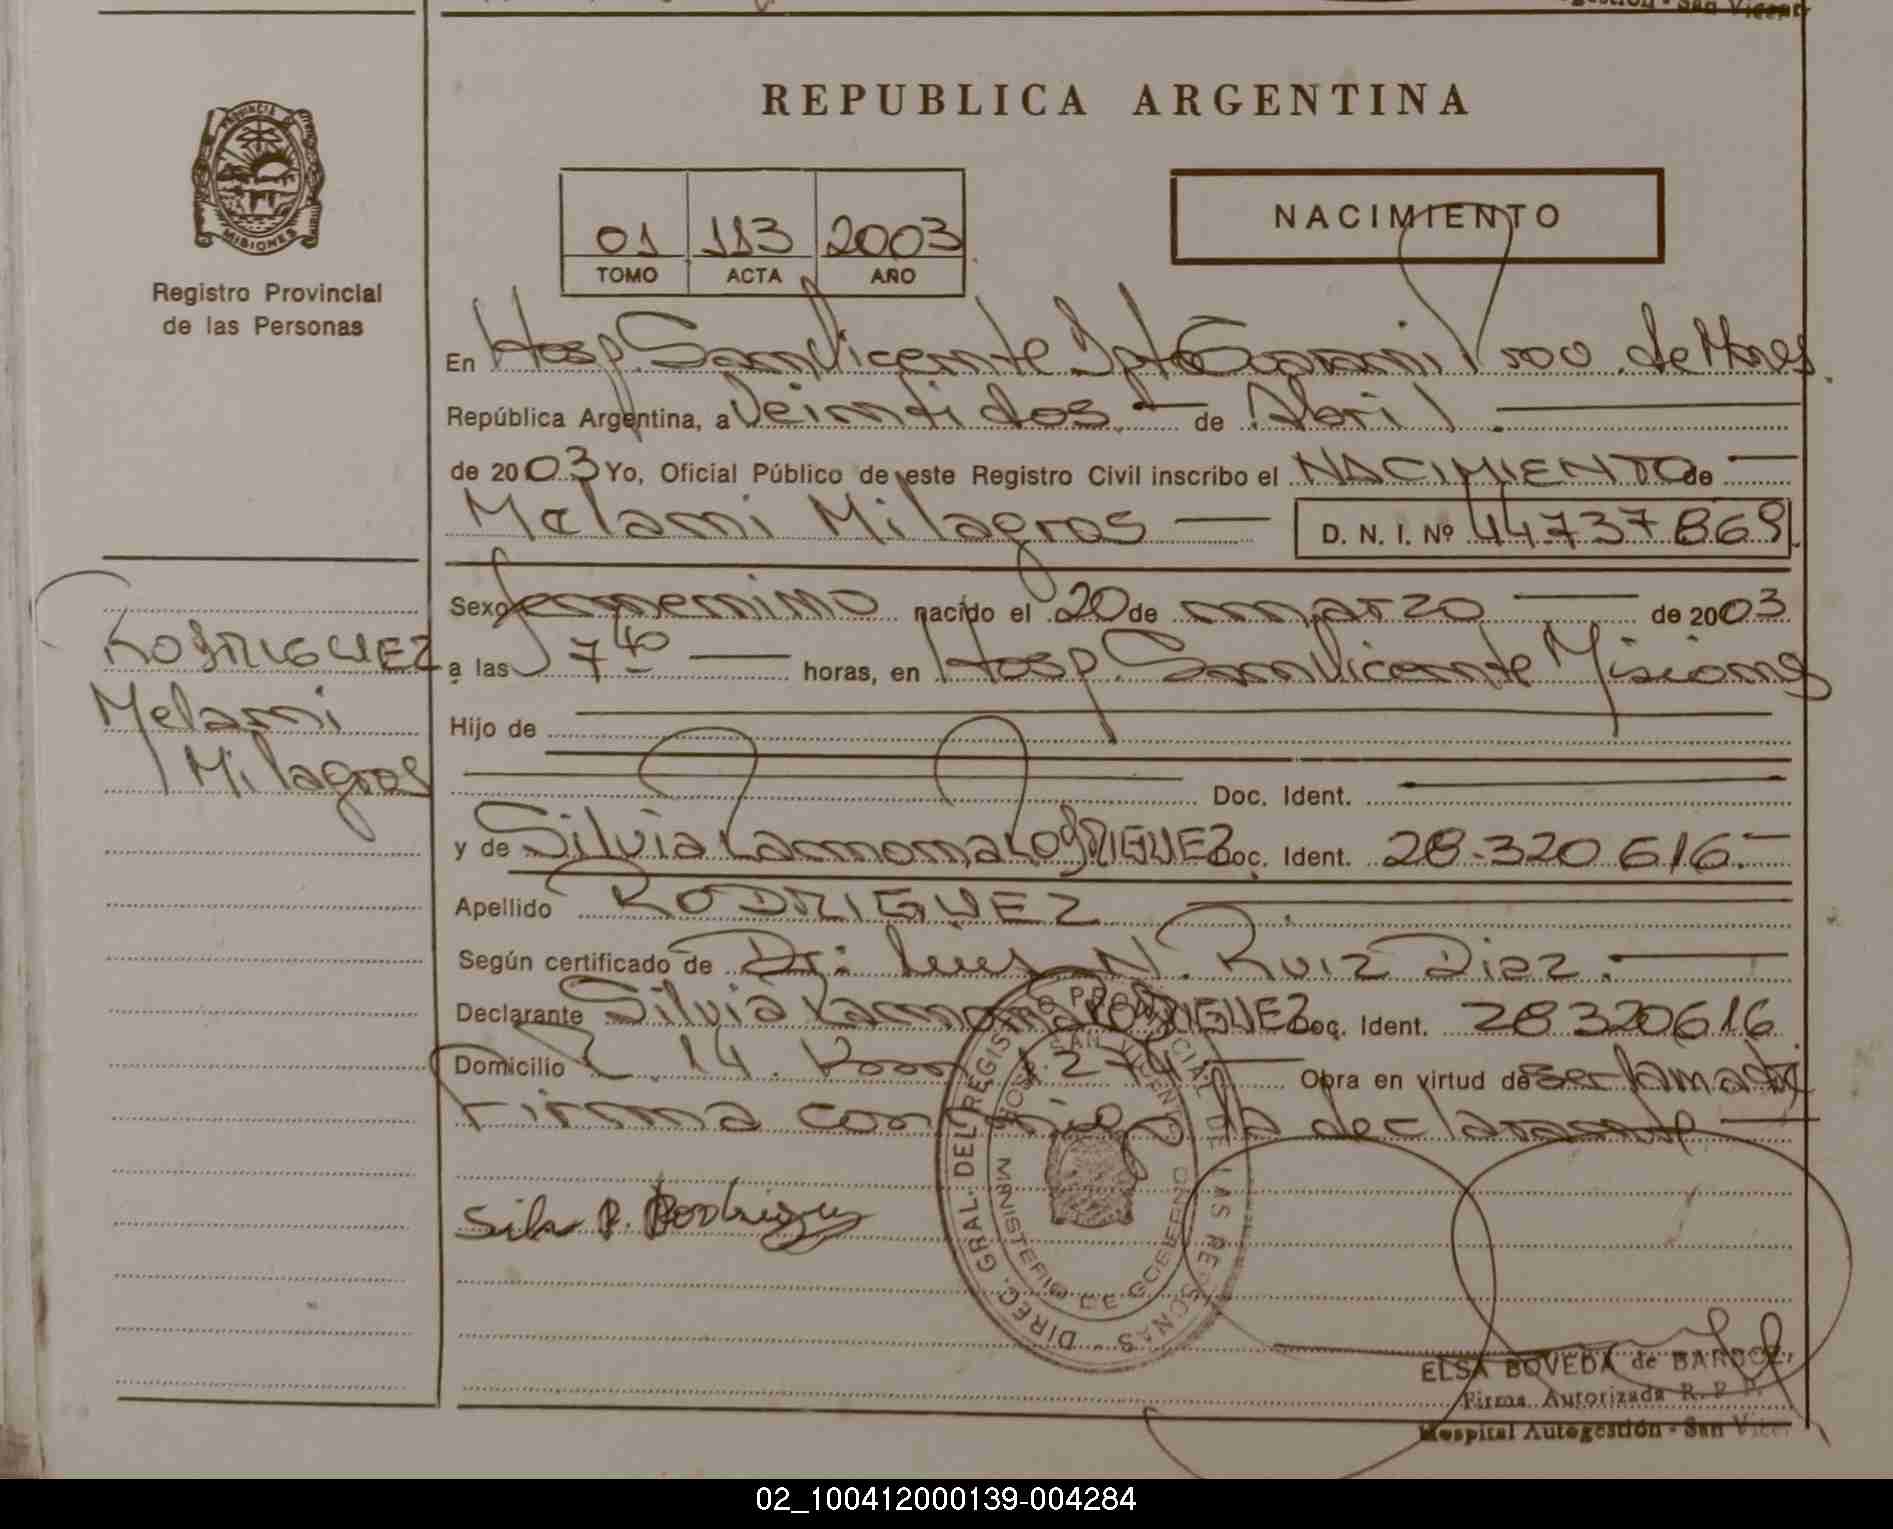 REPUBLICA ARGENTINA
PROVINCIA DE MISIONES
Registro Provincial
de las Personas
01 113 2003
TOMO ACTA AÑO
NACIMIENTO
En Hosp. San Vicente Dpto Guarani Prov. de Mnes.
República Argentina, a Veintidos de Abril
de 2003 Yo, Oficial Público de este Registro Civil inscribo el NACIMIENTO de
Melani Milagros D. N. I. Nº 44737869
Sexo femenino nacido el 20 de marzo de 2003
a las 7 40 horas, en Hosp. San Vicente Misiones
Hijo de
Doc. Ident.
y de Silvia Ramona RODRIGUEZ Doc. Ident. 28.320 616.
Apellido RODRIGUEZ
Según certificado de Dr: Luis N. Ruiz Diaz.
Declarante Silvia Ramona RODRIGUEZ Doc. Ident. 28320616
Domicilio R. 14. Km 1.274 Obra en virtud de ser la madre
Firma conmigo la declarante
RODRIGUEZ
Melani
Milagros
Silv R. Rodriguez
DIREC. GRAL. DEL REGISTRO PROVINCIAL DE LAS PERSONAS
HOSP. SAN VICENTE
MINISTERIO DE GOBIERNO
ELSA BOVEDA de
Firma Autorizada R. P. P.
Hospital Autogestión - San Vicen
02_100412000139-004284